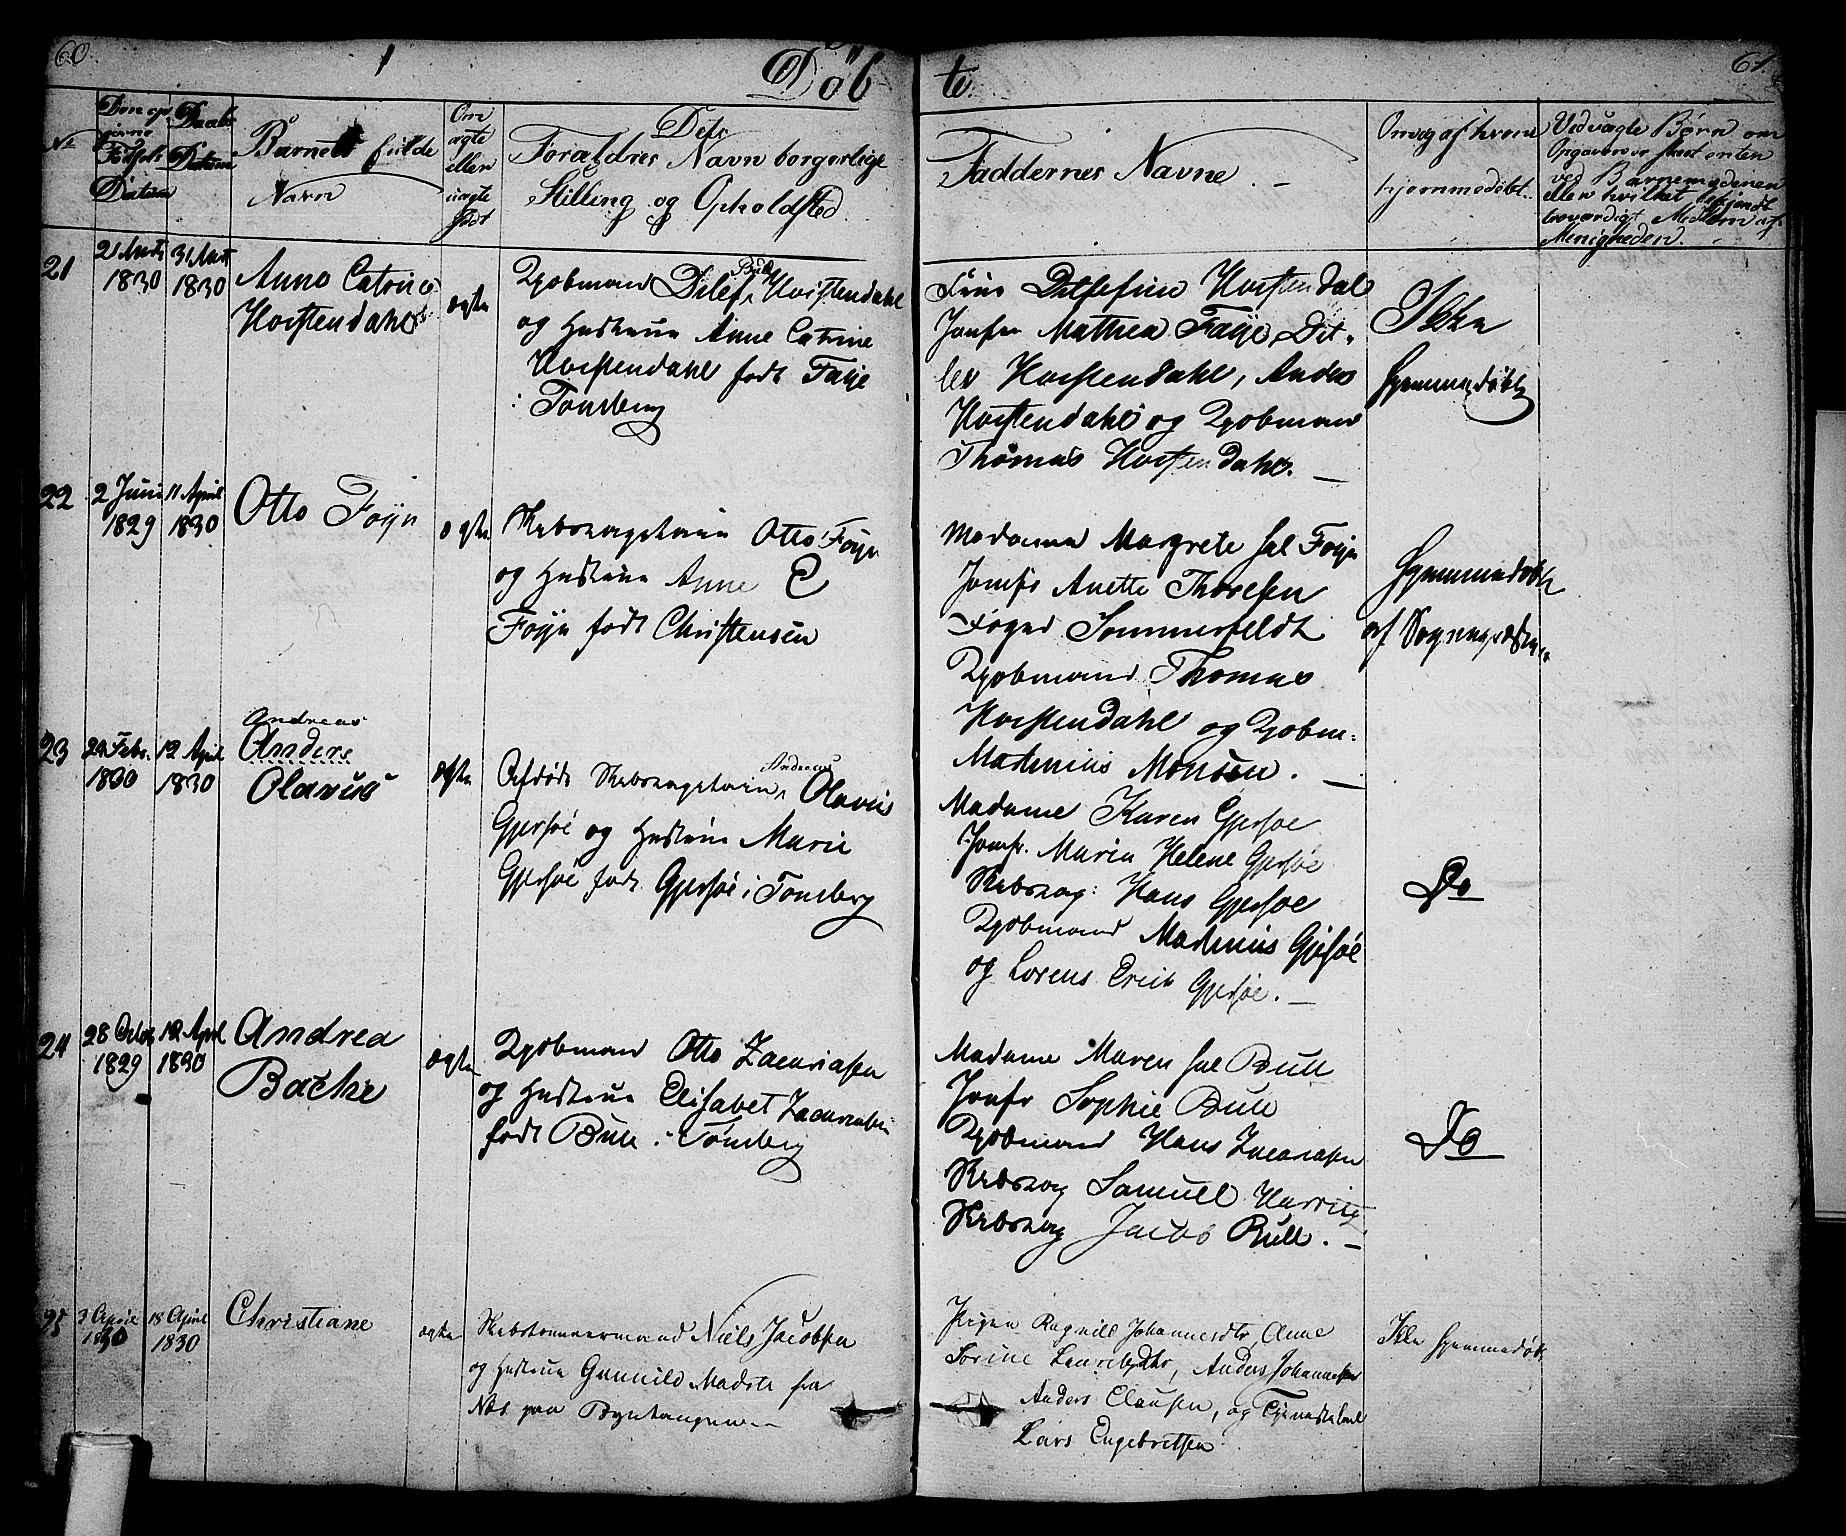 60.
Døb
te.
61.
No
Den op
givne
Fødsels
Datum
Daabs
Datum
Barnets fulde
Navn
Om
ægte
eller
uægte
født
Dets
Forældres Navn borgerlige
Stilling og Opholdsted.
Faddernes Navne. —
Om og af hvem
hjemmedøbt.
Ved uægte Børn om
Opgaven er skeet enten
ved Barnemoderen
eller hvilket bekjendt
troværdigt Medlem af
Menigheden.
21
2 Marts
1830
31 Marts
1830
Anne Catrine
Horstendahl
ægte
Kjøbmand Ditlef Bull Horstendahl
og Hustrue Anne Catrine
Horstendahl født Faÿe
i Tønsberg
Frue Ditlefine Horstendal
Jomfru Mathea Faÿe, Dit-
lev Horstendahl, Anders
Horstendahl og Kjøbmand
Thomas Horstendahl. —
Ikke
hjemmedøbt
22
2 Juni
1829
11 April
1830
Otto Foÿn
ægte
Skibscapitain Otto Foÿn
og Hustrue Anne C
Foÿn født Christensen
Madame Margrete sal Foÿn
Jomfr Anette Thoresen
Foged Sommerfeldt
Kjøbmand Thomas
Horstendahl og Kjøbm:
Mathias Monsen. —
hjemmedøbt
af Sognepræsten
23
24 Febr.
1830
12 April
1830
Andreas
Anders
Olavus
ægte
Afdøde Skibscapitain Andreas Olavus
Gjersøe og Hustrue Marie
Gjersøe født Gjersøe i Tønsberg
Madame Karen Gjersøe
Jomfr. Maria Helene Gjersøe
Skibscap: Hans Gjersøe
Kjøbmand Mathias Gjersøe
og Lorens Erich Gjersøe. —
Do
24
28 Octob
1829
12 April
1830
Andrea
Bache
ægte
Kjøbmand Otto Zacariasen
og Hustrue Elisabet Zacariasen
født Bull i Tønsberg
Madame Maren sal Bull
Jomfr Sophie Bull
Kjøbmand Hans Zacariasen
Skibscap Samuel
Skibscap Jacob Bull. —
Do
25
3 April
1830
18 April
1830
Christiane
ægte
Skibstømmermand Niels Jacobsen
og Hustrue Gunnild Madsdt fra
Næs paa
Pigen Ragnild Johannesdtr, Anne
Sorine Lauritzdtr, Anders Johannesen
Anders Clausen, og Tjenestekarl
Lars Engebretsen
Ikke hjemmedøbt